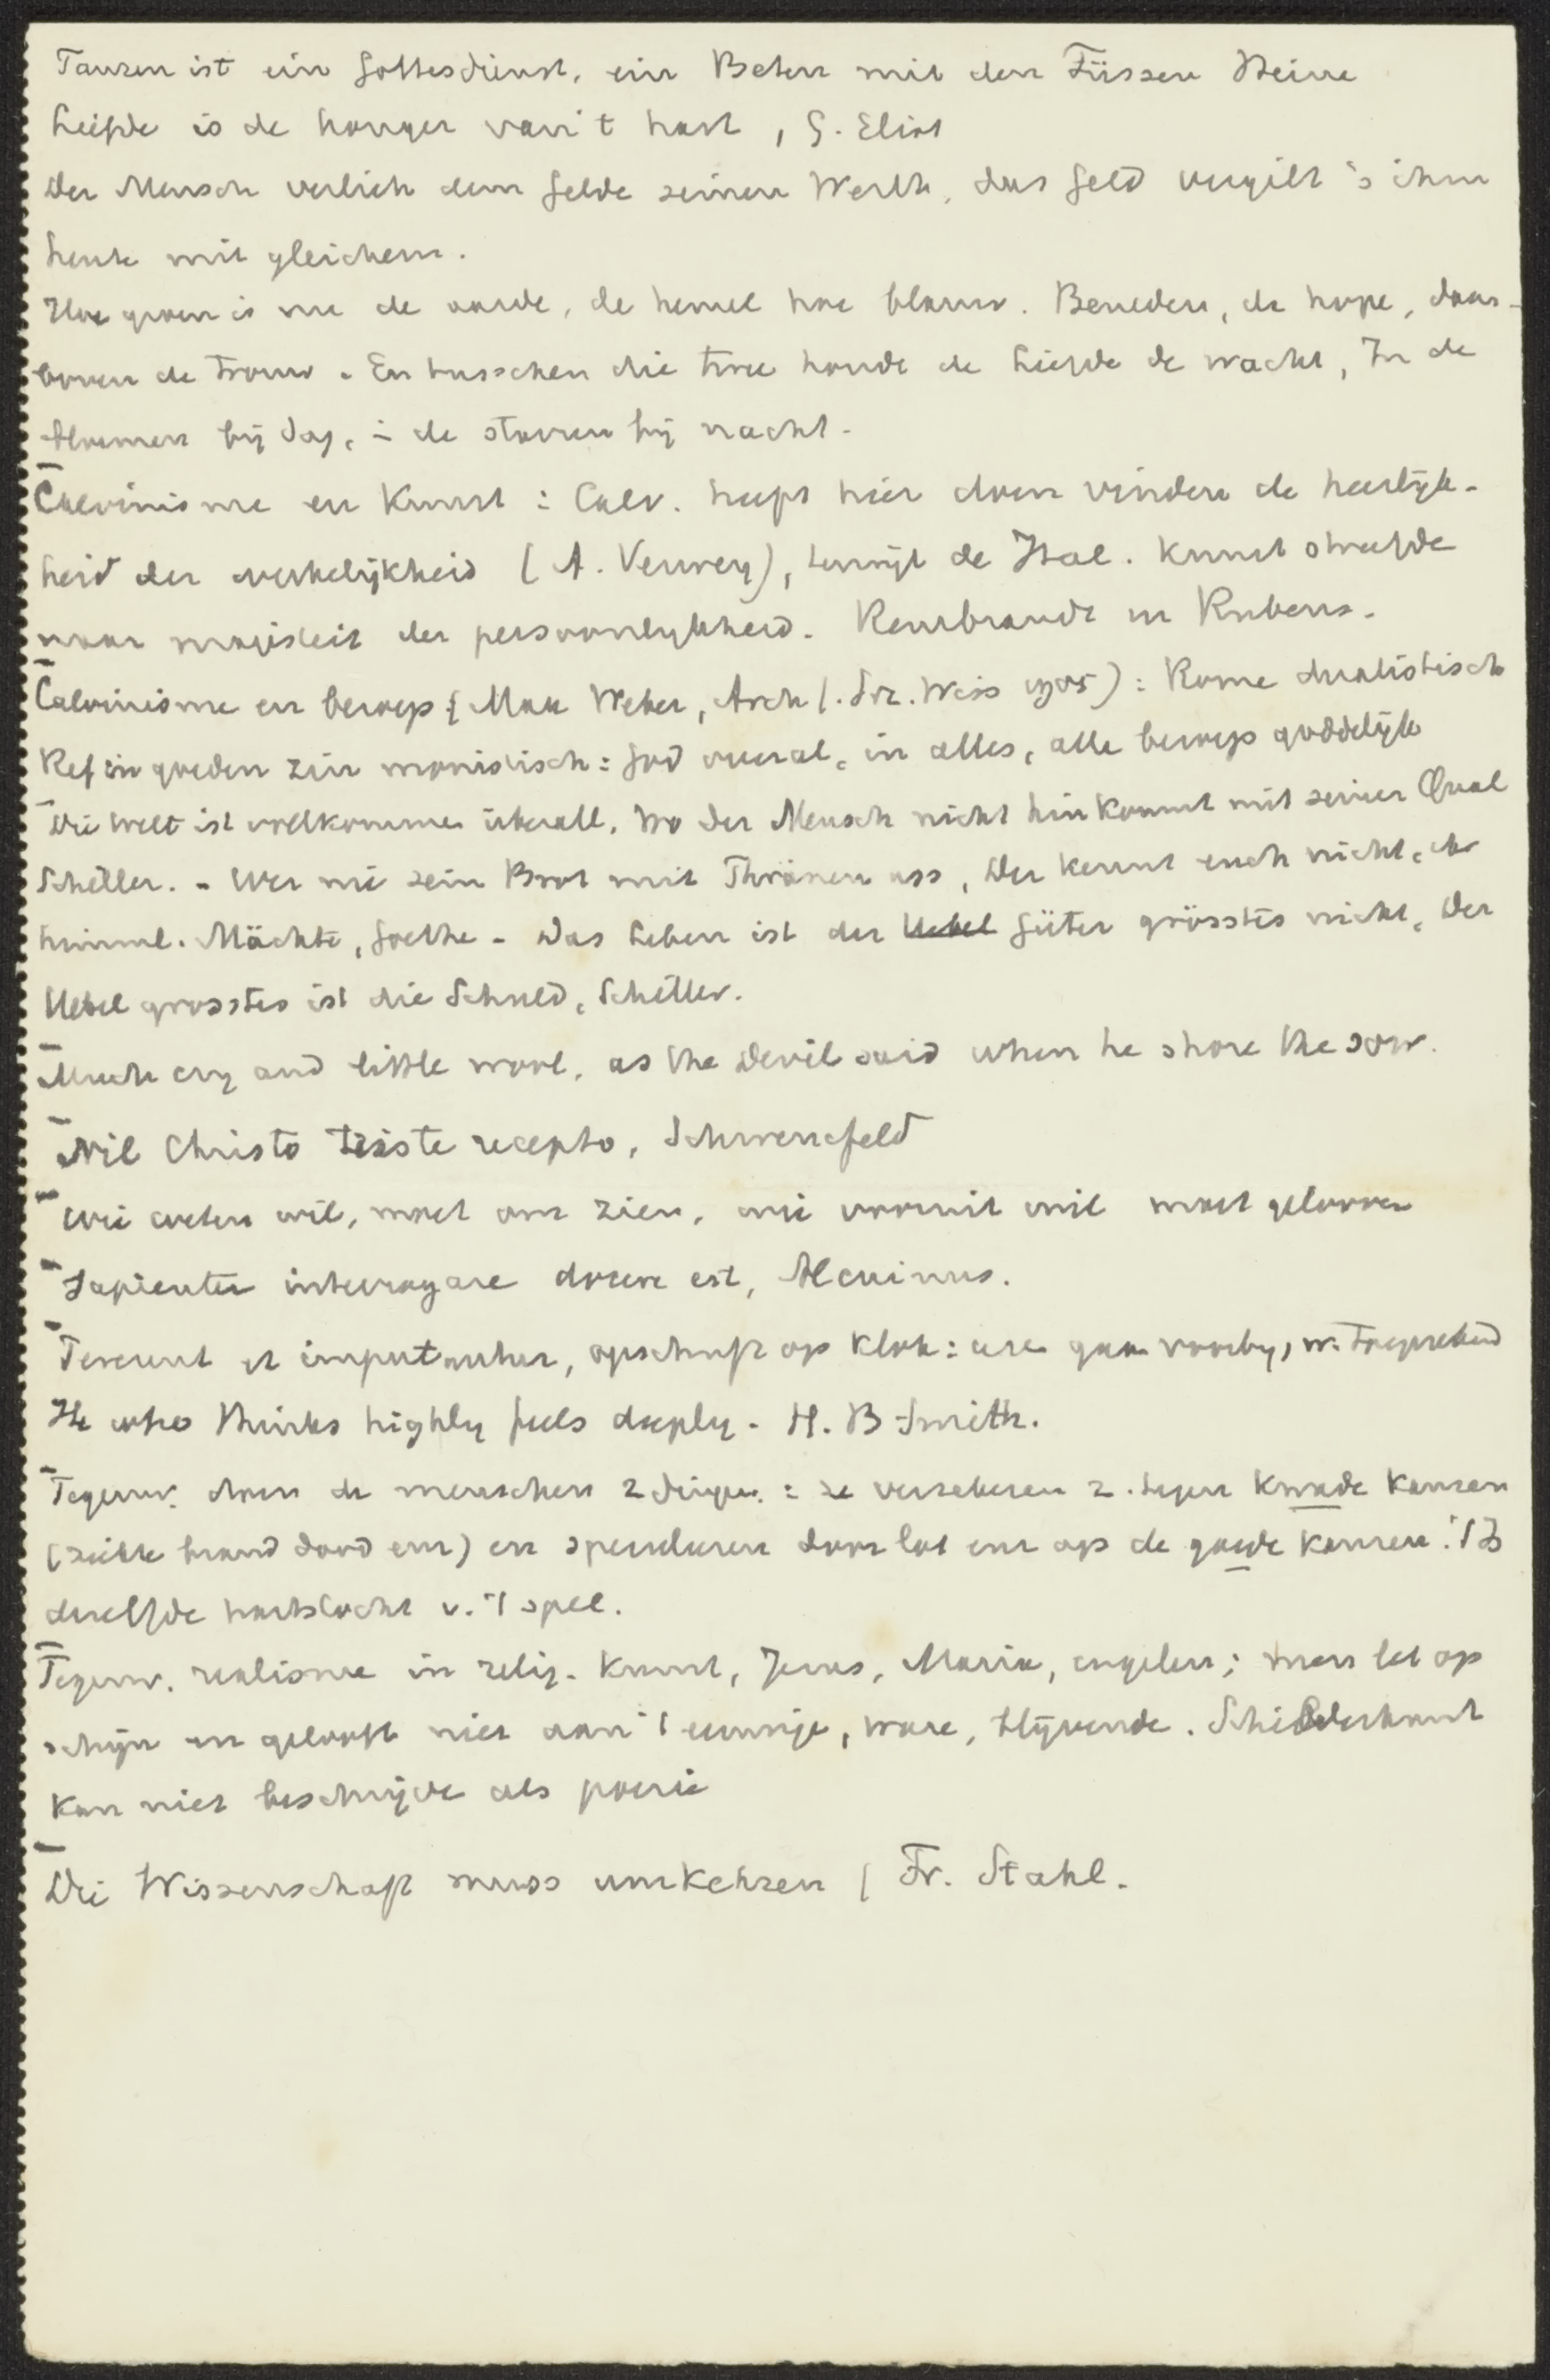 Tanzen ist ein Gottesdienst, ein Beten mit den Füssen Heine
Liefde is de honger van 't hart, G. Eliot
Der Mensch verlieh dem Gelde seinen Werth, das Geld vergilt 's ihm
heute mit gleichem.
Hoe groen is me de aarde, de hemel hoe blauw. Beneden, de hope, daar-
boven de trouw. En tusschen die twee houdt de Liefde de wacht, In de
bloemen bij dag, in de sterren bij nacht.
Calvinisme en Kunst: Calv. heeft hier doen vinden de heerlijk-
heid der werkelijkheid (A. Verwey), terwijl de Ital. Kunst streefde
naar majesteit der persoonlijkheid. Rembrandt en Rubens.
Calvinisme en beroep (Max Weber, Arch f. Soz. Wiss 1905): Rome dualistisch
Ref in goeden zin monistisch: God overal, in alles, alle beroep goddelijk
Die Welt ist vollkommen überall, Wo der Mensch nicht hinkommt mit seiner Qual
Schiller. - Wer nie sein Brot mit Thränen ass, Der kennt euch nicht, ihr
himml. Mächte, Goethe - Das Leben ist der Uebel Güter grösstes nicht, Der
Uebel grosstes ist die Schuld, Schiller.
Much cry and little wool, as the Devil said when he shore the sow.
Nil Christo triste recepto, Schwenckfeld
Wie weten wil, moet om zien, wie vooruit wil moet gelooven
Sapienter interrogare docere est, Alcuinus.
Pereunt et imputantur, opschrift op Klok: uren gaan voorbij, w. toegerekend
He who thinks highly feels deeply - H. B Smith.
Tegenw. doen de menschen 2 dingen: ze verzekeren z. tegen kwade kansen
(ziekte brand dood enz) en speculeren door lot enz op de goede kansen. 't Is
dezelfde hartstocht v. 't spel.
Tegenw. realisme in relig. Kunst, Jezus, Maria, engelen; men let op
schijn en gelooft niet aan 't eeuwige, ware, blijvende. Schilderkunst
kan niet beschrijven als poezie
Die Wissenschaft muss umkehren, Fr. Stahl.